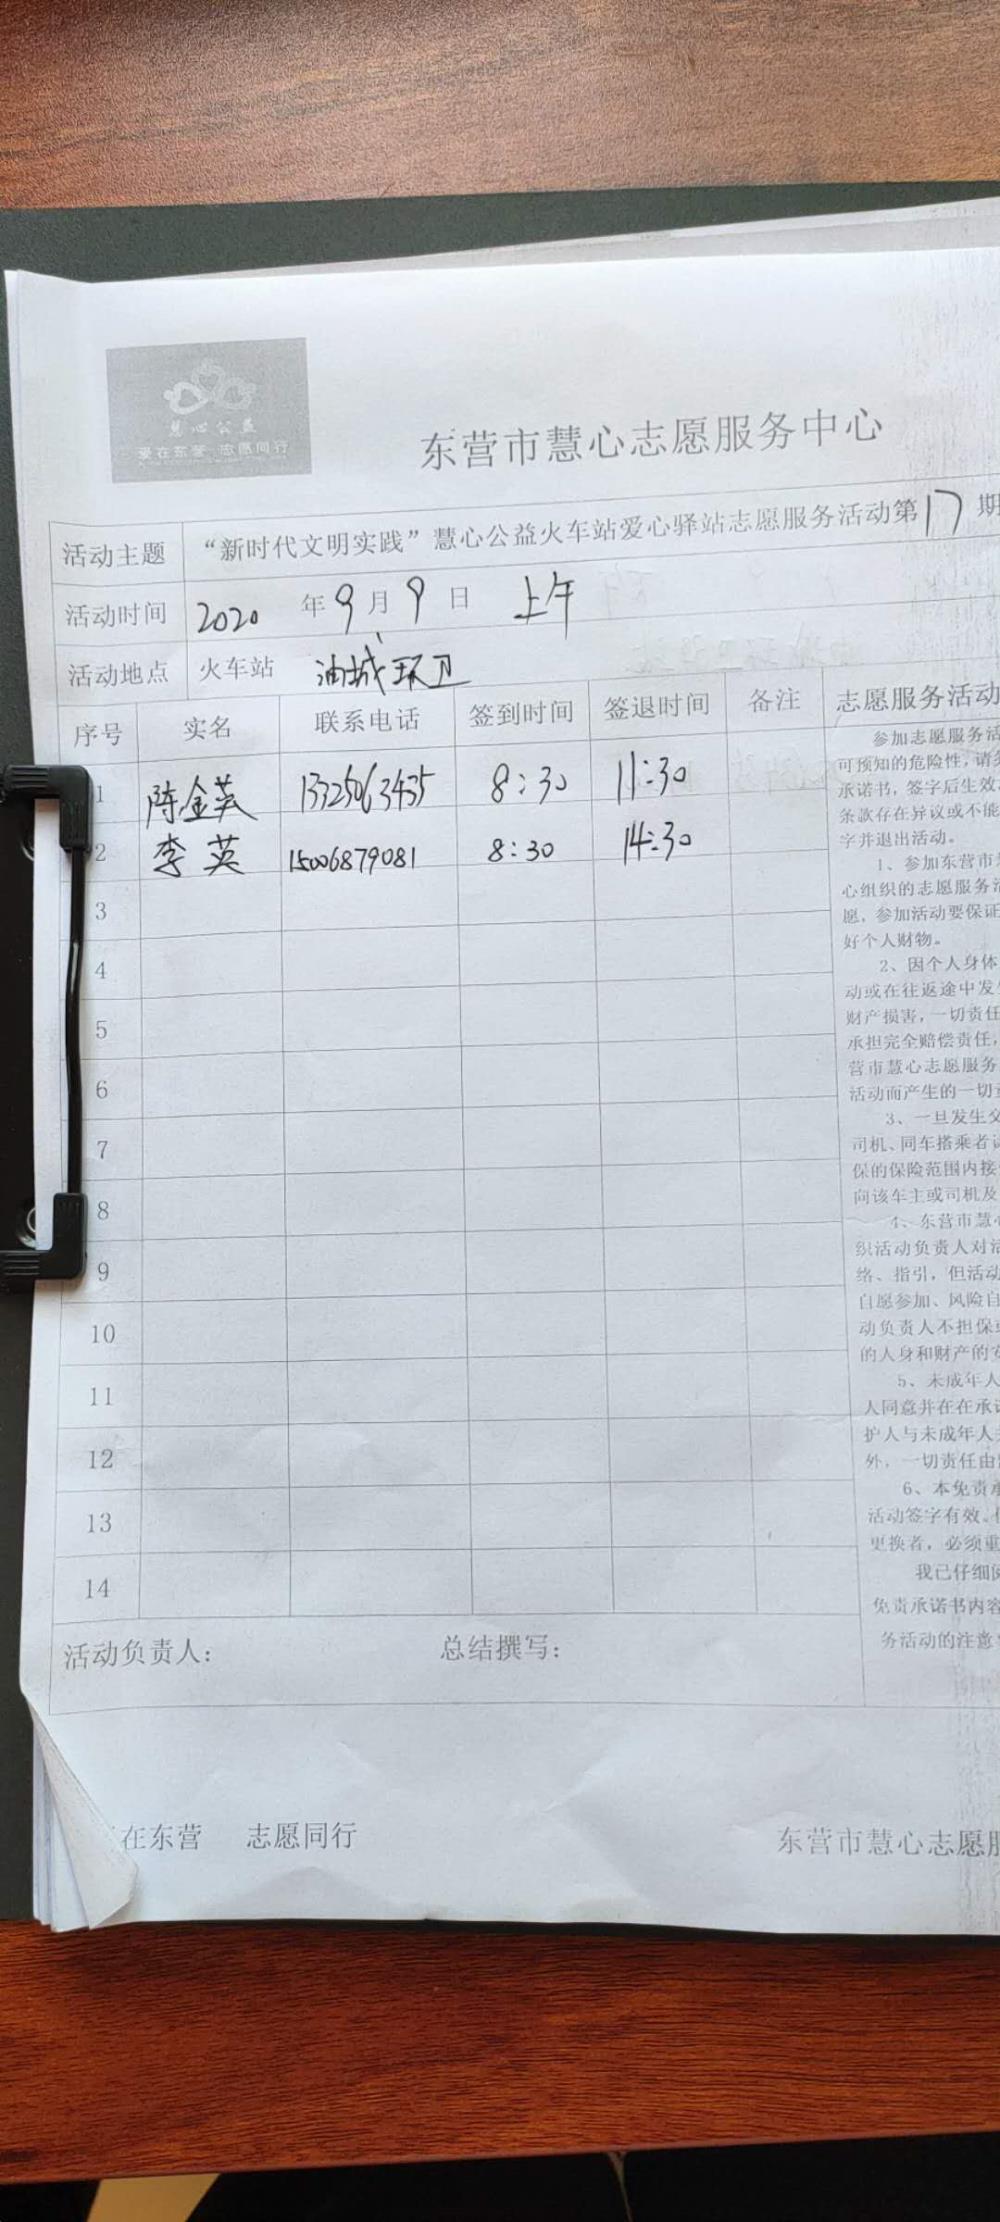 慧心公益
爱在东营 志愿同行
东营市慧心志愿服务中心
活动主题 “新时代文明实践”慧心公益火车站爱心驿站志愿服务活动第17期
活动时间 2020 年9月9日 上午
活动地点 火车站 油城环卫
序号 实名 联系电话 签到时间 签退时间 备注 志愿服务活动
1 陈金英 13325063435 8:30 11:30
2 李英 15006879081 8:30 14:30
3
4
5
6
7
8
9
10
11
12
13
14
参加志愿服务活
可预知的危险性,请
承诺书,签字后生效
条款存在异议或不能
字并退出活动。
1、参加东营市
心组织的志愿服务活
愿,参加活动要保证
好个人财物。
2、因个人身体
动或在往返途中发
财产损害,一切责任
承担完全赔偿责任,
营市慧心志愿服务
活动而产生的一切
3、一旦发生交
司机、同车搭乘者
保的保险范围内接
向该车主或司机及
4、东营市慧心
织活动负责人对活
络、指引,但活动
自愿参加、风险自
动负责人不担保
的人身和财产的安
5、未成年人
人同意并在在承诺
护人与未成年人
外,一切责任由
6、本免责承
活动签字有效。
更换者,必须重
我已仔细阅
免责承诺书内容
务活动的注意
活动负责人: 总结撰写:
在东营 志愿同行 东营市慧心志愿服